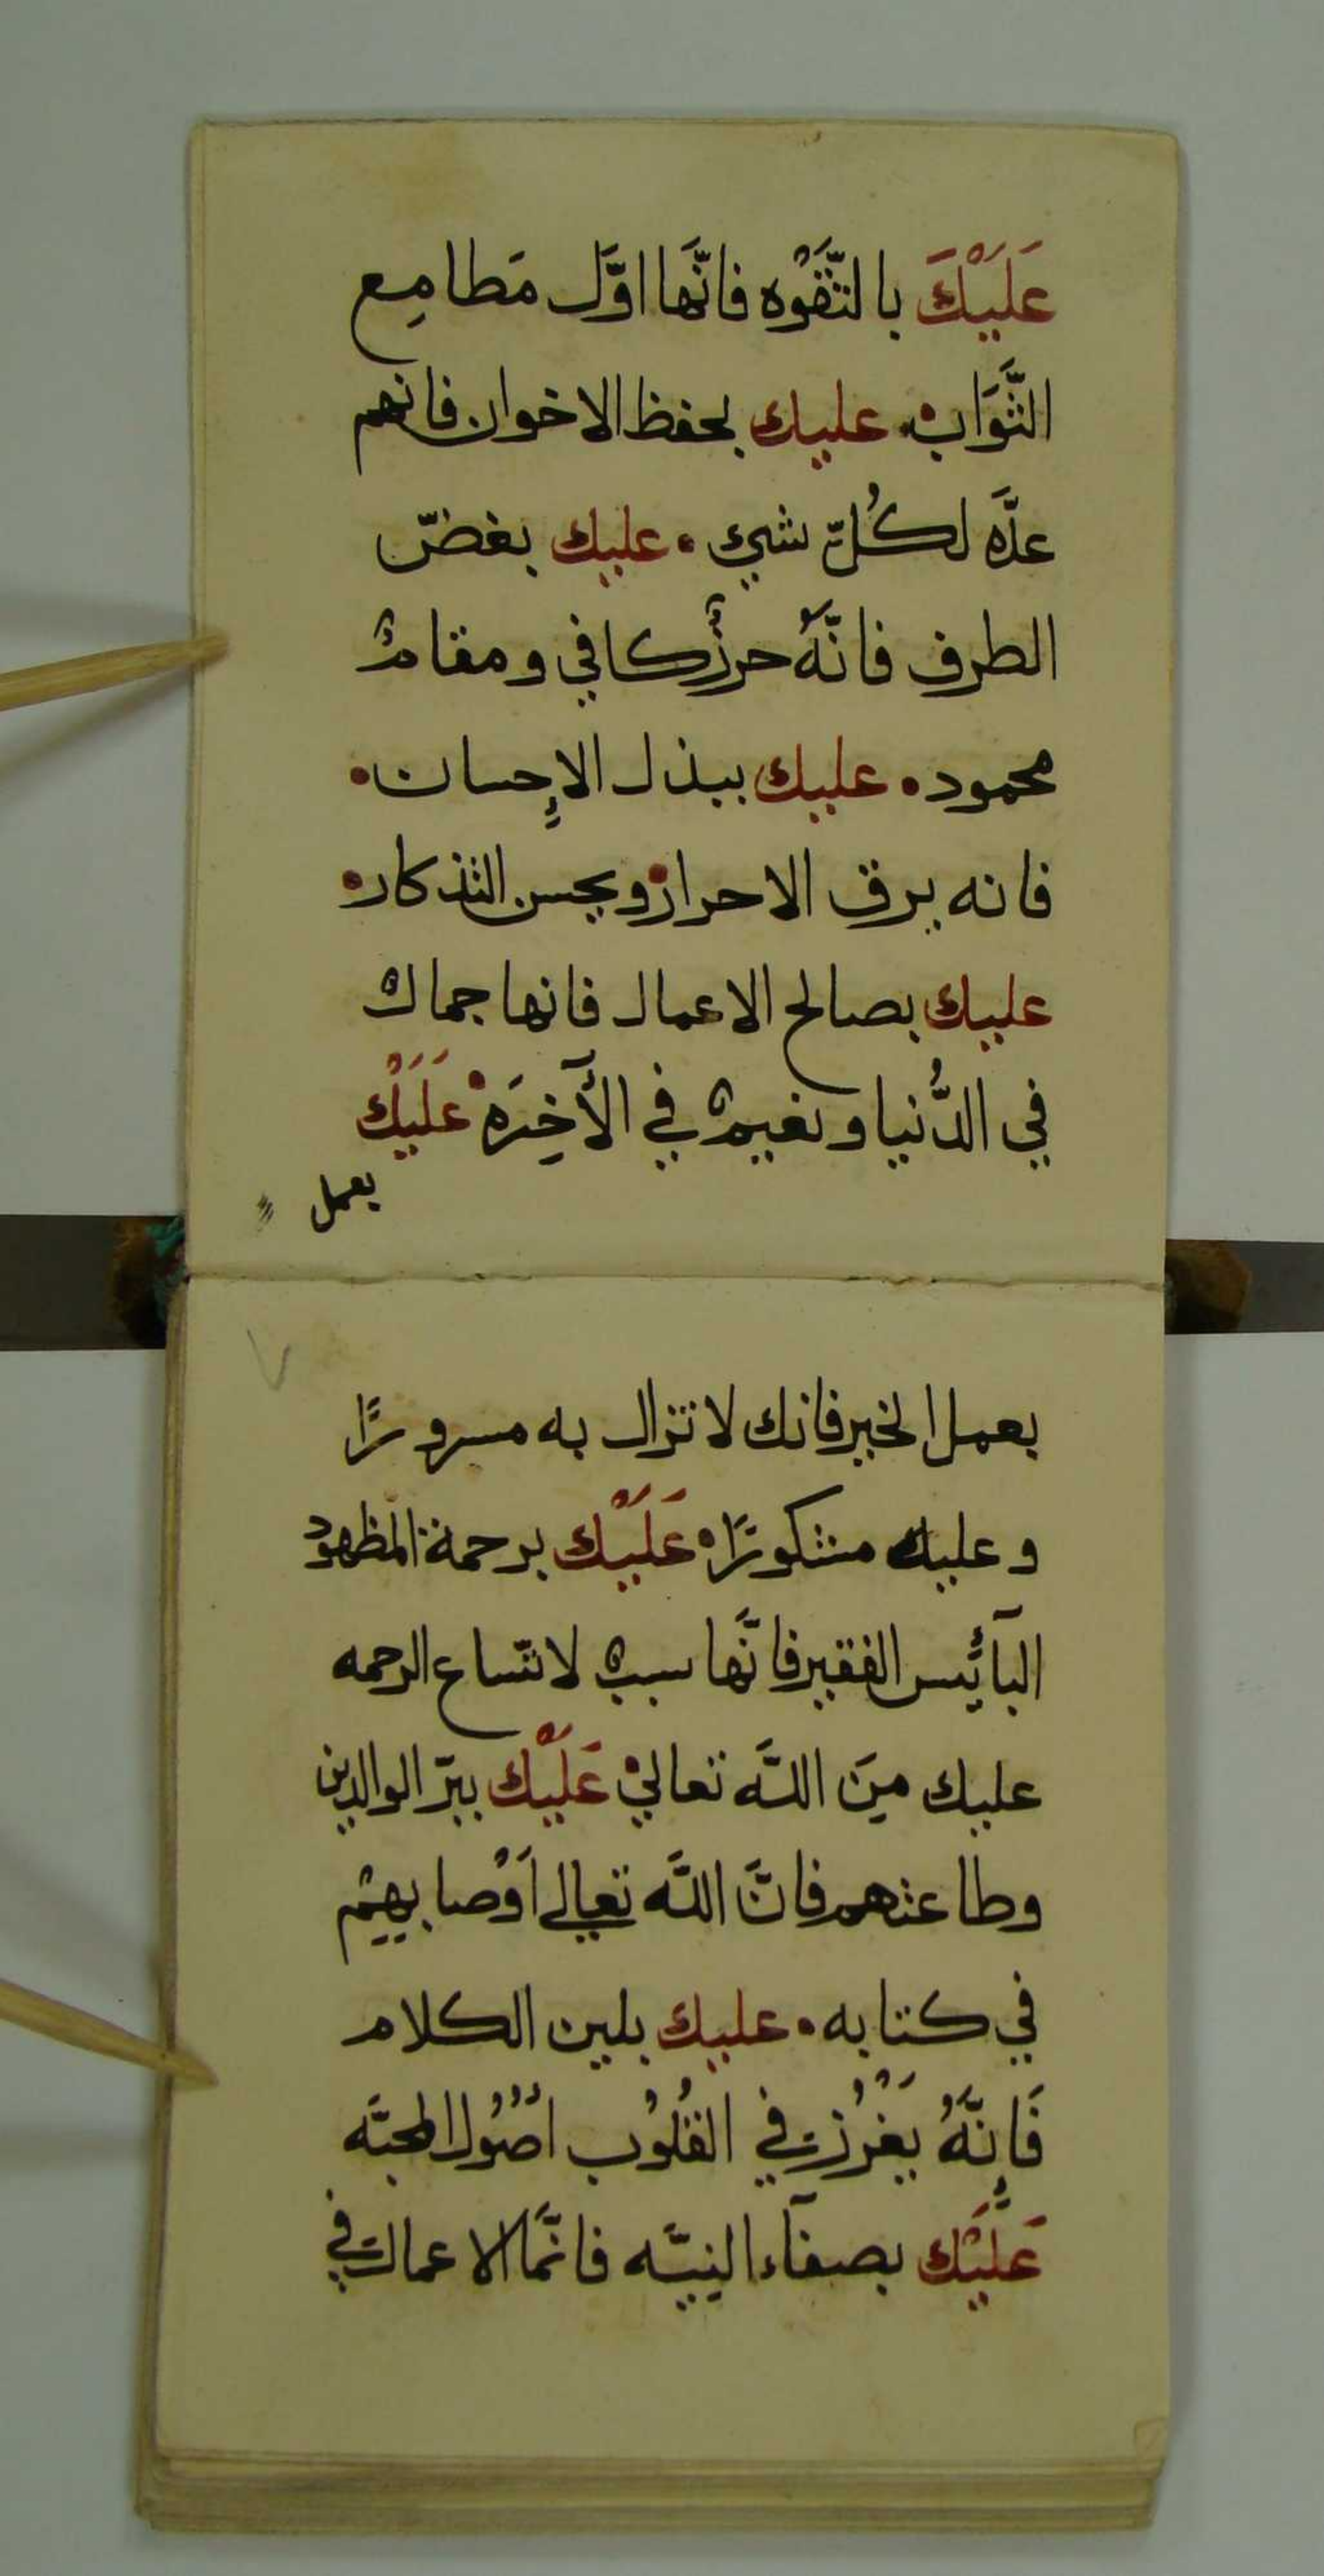 عَلَيْكَ بالتَّقْوه فانَّها اوَّل مَطامِع
الثَّوَاب. عليك بحفظ الاخوان فانهم
عدَّه لكُلّ شيء . عليك بغضّ
الطرف فانَّهُ حرزٌ كافي ومقامٌ
محمود . عليك ببذل الاِحسان .
فانه يرق الاحرار . ويحسن التذكار .
عليك بصالح الاعمال فانها جمالٌ
في الدُّنيا ونعيمٌ في الآخِرَه . عَلَيْك
بعمل
بعمل الخير فانك لا تزال به مسرورًا
وعليه مشكورًا . عَلَيْك برحمة المظهود
البآئِس الفقير فانَّها سببٌ لاتّساع الرحمه
عليك مِنَ اللَّه تعالي . عَلَيْك ببرّ الوالدين
وطاعتهم فانَّ اللَّه تعالي اَوْصا بهِم
في كتابه . عليك بلين الكلام
فَاِنَّهُ يَغْرُز في القُلُوب اُصُول المحبَّه
عَلَيْك بصفآء النِيَّه فانَّما الاعمال في